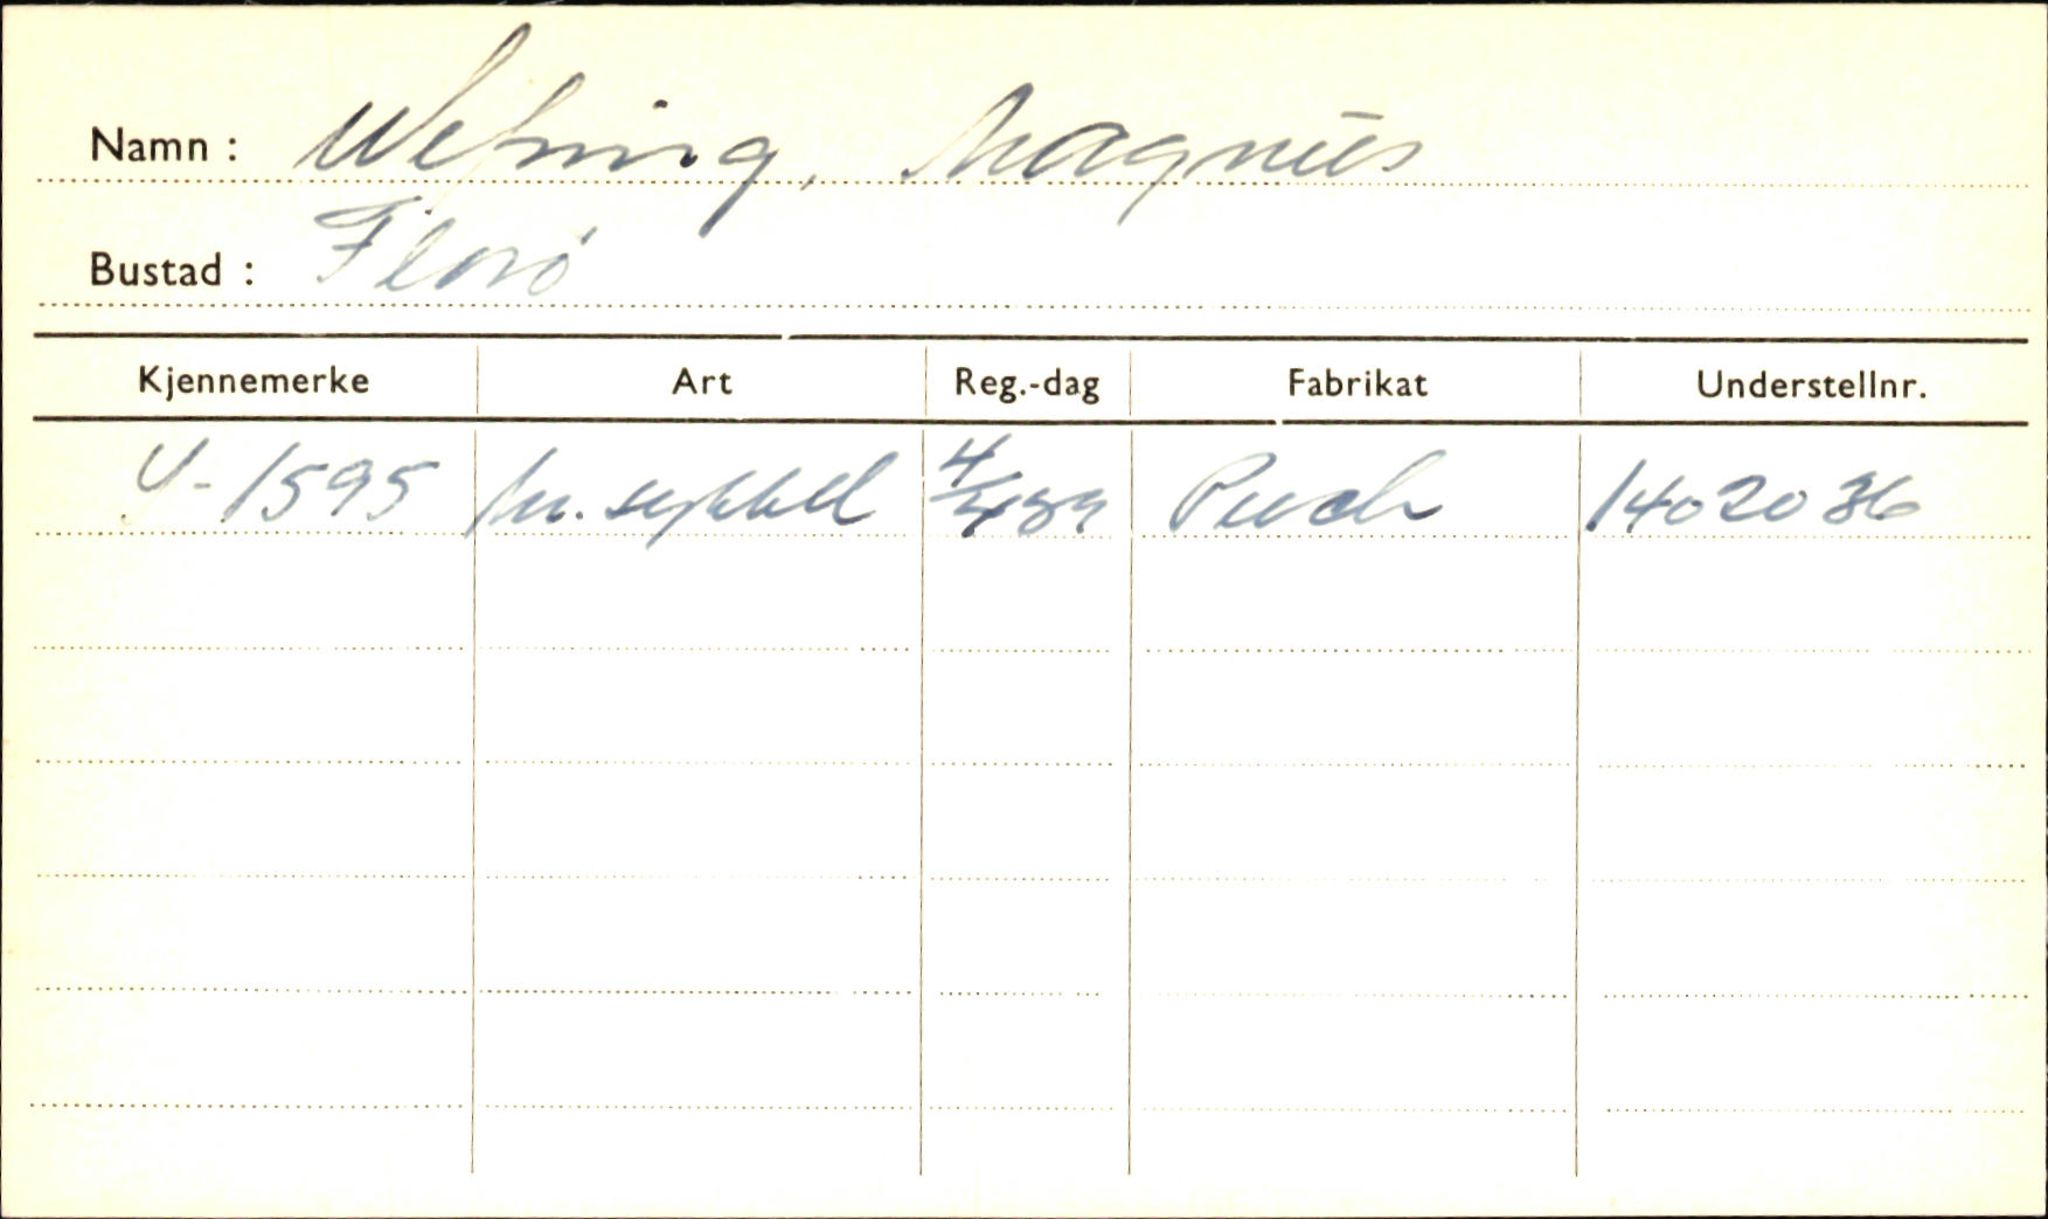 Namn : Wefring, Magnus
Bustad : Florø
Kjennemerke Art Reg.-dag Fabrikat Understellnr.
Y-1595 m.sykkel 4/4 59 Puch 1402036